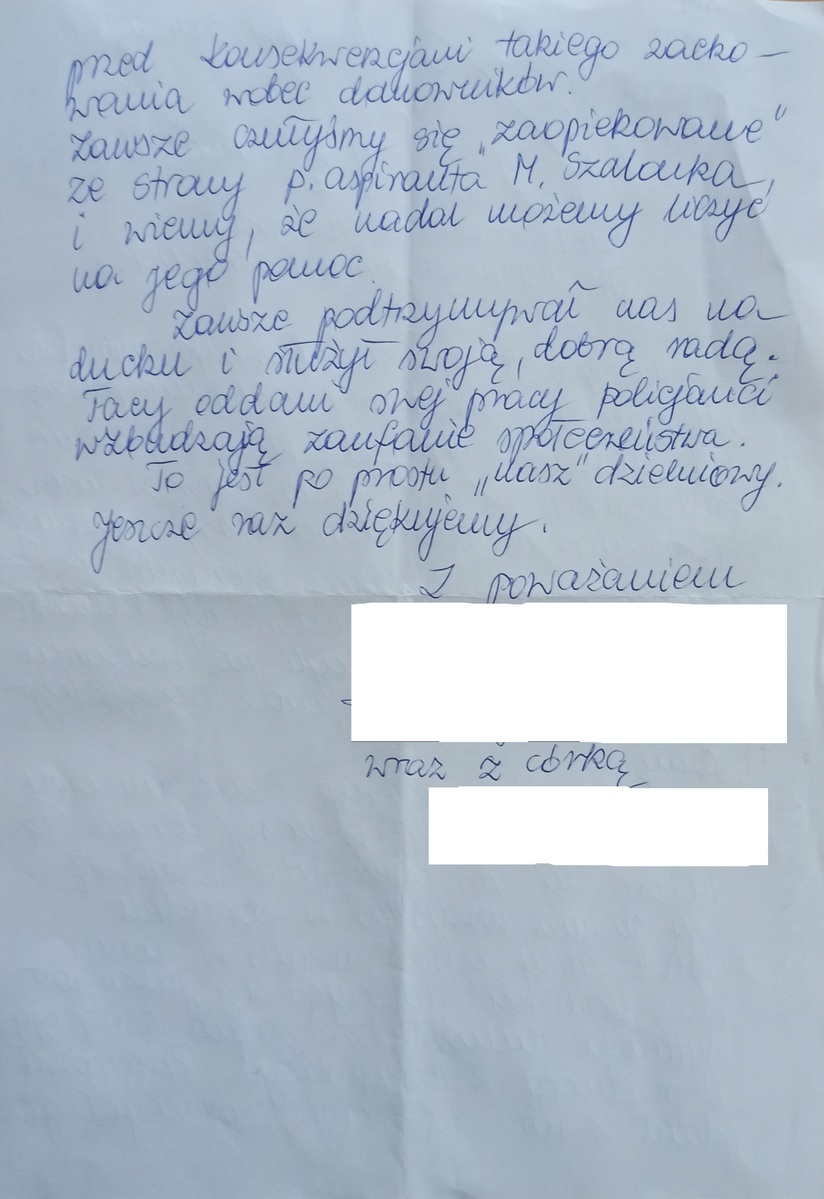 przed konsekwencjami takiego zacho-
wania wobec domowników.
Zawsze czułyśmy się „zaopiekowane"
ze strony p. aspiranta M. Szalonka,
i wiemy, że nadal możemy liczyć
na jego pomoc.
Zawsze podtrzymywał nas na
duchu i służył swoją, dobrą radą.
Tacy oddani swej pracy policjanci
wzbudzają zaufanie społeczeństwa.
To jest po prostu „nasz" dzielnicowy.
Jeszcze raz dziękujemy.
Z poważaniem
wraz z córką